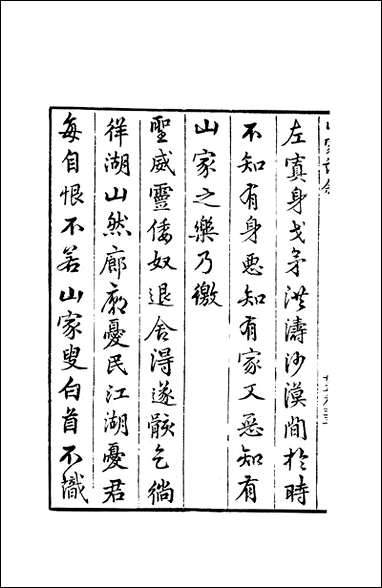 左寘身戈矛洪濤沙漠間於時
不知有身惡知有家又惡知有
山家之樂乃徼
聖威靈倭奴退舍得遂骸乞徜
徉湖山然廊廟憂民江湖憂君
每自恨不若山家叟白首不識